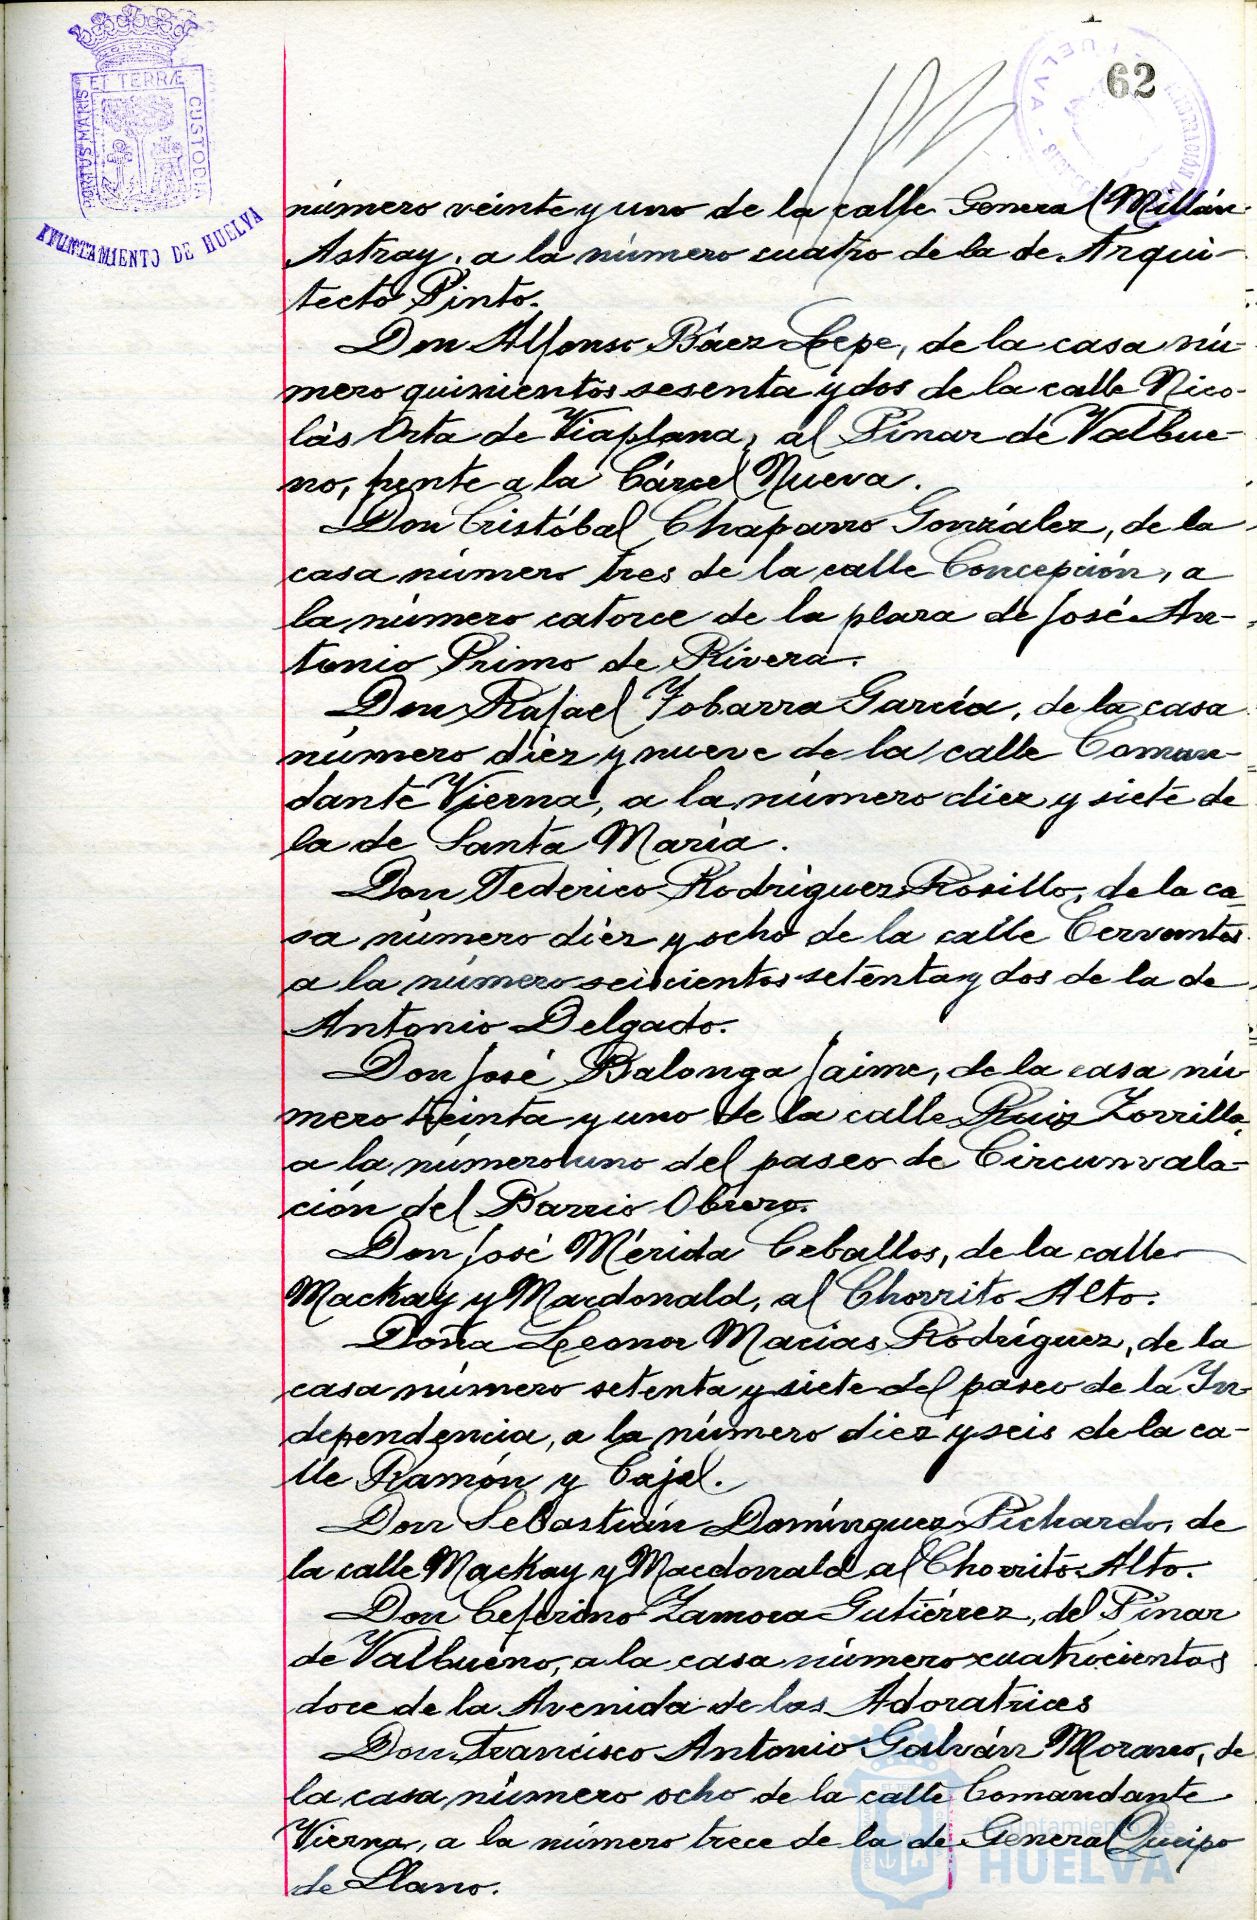 62
PORTUS MARIS ET TERRÆ CUSTODIA
AYUNTAMIENTO DE HUELVA
número veinte y uno de la calle General Millán
Astray, a la número cuatro de la de Arqui-
tecto Pinto.
Don Alfonso Báez Lepe, de la casa nú-
mero quinientos sesenta y dos de la calle Nico-
lás Orta de Viaplana, al Pinar de Valbue-
no, frente a la Cárcel Nueva.
Don Cristóbal Chaparro González, de la
casa número tres de la calle Concepción, a
la número catorce de la plaza de José An-
tonio Primo de Rivera.
Don Rafael Tobarra García, de la casa
número diez y nueve de la calle Coman-
dante Vierna, a la número diez y siete de
la de Santa María.
Don Federico Rodríguez Rosillo, de la ca-
sa número diez y ocho de la calle Cervantes
a la número seiscientos setenta y dos de la de
Antonio Delgado.
Don José Balonga Jaime, de la casa nú
mero treinta y uno de la calle Ruiz Zorrilla,
a la número uno del paseo de Circunvala-
ción del Barrio Obrero.
Don José Mérida Ceballos, de la calle
Mackay y Macdonald, al Chorrito Alto.
Doña Leonor Macías Rodríguez, de la
casa número setenta y siete del paseo de la In-
dependencia, a la número diez y seis de la ca-
lle Ramón y Cajal.
Don Sebastián Domínguez Pichardo, de
la calle Mackay y Macdonald al Chorrito Alto.
Don Ceferino Zamora Gutiérrez, del Pinar
de Valbueno, a la casa número cuatrocientos
doce de la Avenida de las Adoratrices
Don Francisco Antonio Galván Morano, de
la casa número ocho de la calle Comandante
Vierna, a la número trece de la de General Queipo
de Llano.
Ayuntamiento de
HUELVA